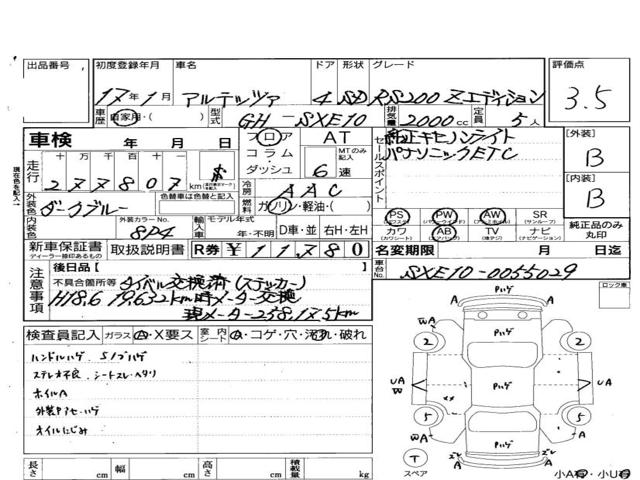 出品番号
初度登録年月 車名 ドア 形状 グレード
17年1月 アルテッツァ 4 SD RS200 Zエディション
評価点
3.5
車歴 自家用・ 型式 GH-SXE10 排気量 2000cc 定員 5人
車検 年 月 日
フロア コラム ダッシュ
AT
MTのみ記入 6速
走行 十 万 千 百 十
277807km
冷房 AAC
燃料 ガソリン・軽油・( )
外装色 ダークブルー
色替車は色替と記入
内装色
外装カラーNo. 8P4
輸入車 モデル年式 年・不明 D車・並 右H・左H
セールスポイント
純正キセノンライト
パナソニックETC
PS PW AW SR(サンルーフ)
カワ(カワシート) AB(エアバッグ) TV(地デジ) ナビ(ナビゲーション)
純正品のみ丸印
[外装]
B
[内装]
B
新車保証書 ディーラー捺印があるもの 取扱説明書 R券 ¥11,780
名変期限 月 日迄
車台No. SXE10-0055029
注意事項
後日品( )
不具合箇所等 タイベル交換済(ステッカー)
H18.6 79,632km時メーター交換
現メーター258,175km
検査員記入 ガラス A・X要ス 室内シート A・コゲ・穴・汚れ・破れ
ハンドルハゲ、Sノブハゲ
ステレオ不良、シートスレ・ヘタリ
ホイルA
外装PアセハゲI
オイルにじみ
長さ cm 幅 cm 高さ cm 積載量 kg
ロック車
A Pハゲ A
WA A
2 2
UA W Pハゲ UA
5 5
WA A
Pハゲ
T スペア
小A有・小U有
現在色を記入